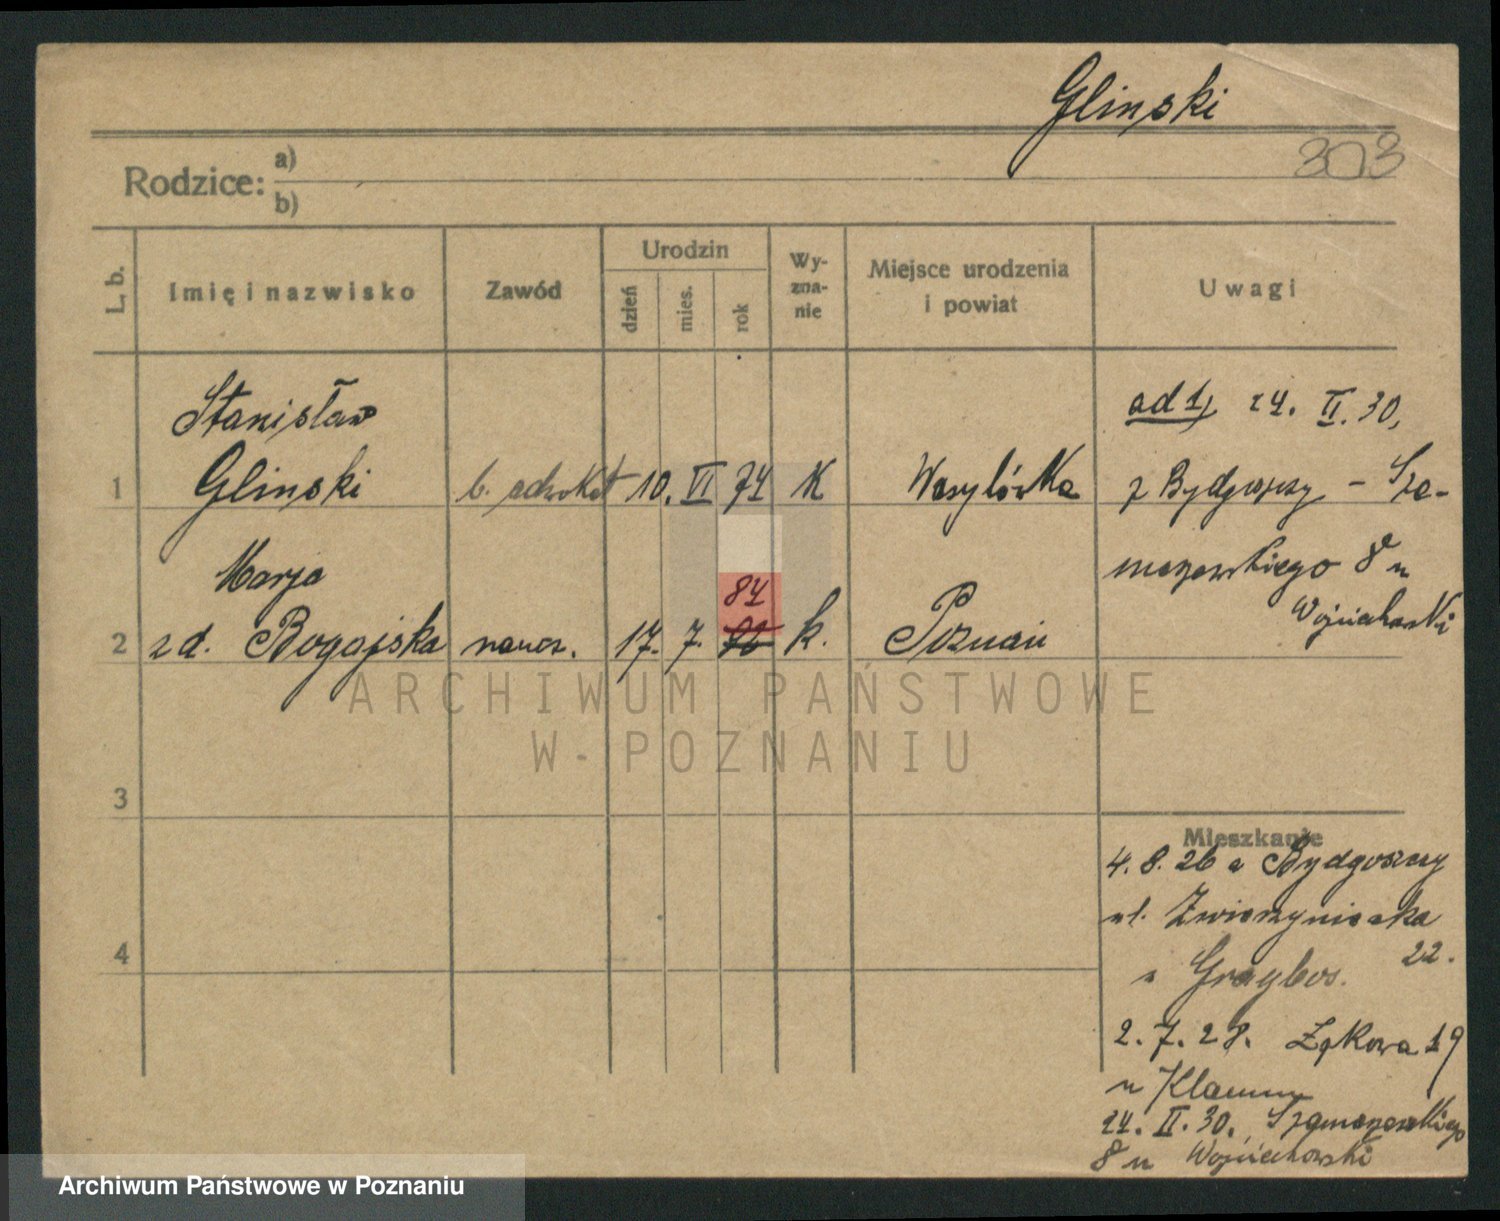 Glinski
303
Rodzice: a)
b)
L. b.
Imię i nazwisko
Zawód
Urodzin
dzień
mies.
rok
Wy-
zna-
nie
Miejsce urodzenia
i powiat
Uwagi
Stanisław
1 Glinski b. adwokat 10. VI 74 K Wasylówka
ad 1) 24. II. 30,
z Bydgoszczy - Sza-
marzewskiego 8 u
Wojciechowski
Marja
84
2 z d. Bogajska naucz. 17. 7. 76 k. Poznań
ARCHIWUM PAŃSTWOWE
W POZNANIU
3
4
Mieszkanie
4. 8. 26 z Bydgoszczy
ul. Zwierzyniecka
22.
2. 7. 28. Łąkowa 19
u
24. II. 30. Szamarzewskiego
8 u Wojciechowski
Archiwum Państwowe w Poznaniu